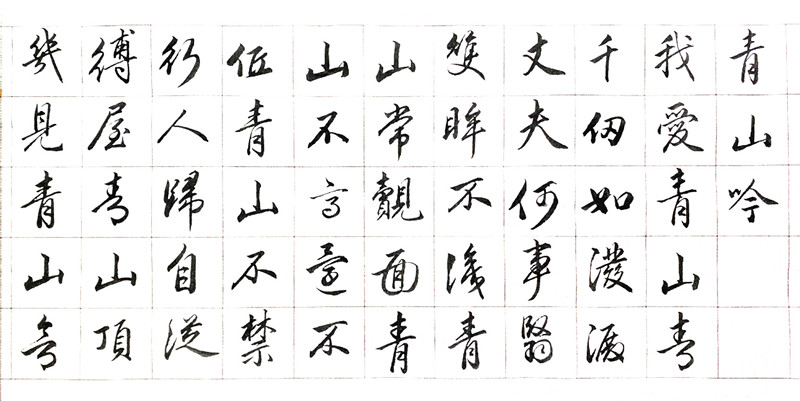 青山吟
我愛青山青
千仞如潑
丈夫何事翳
雙眸不識青
山常覿面青
山不高還不
低青山不禁
行人歸自從
縛屋青山頂
幾見青山